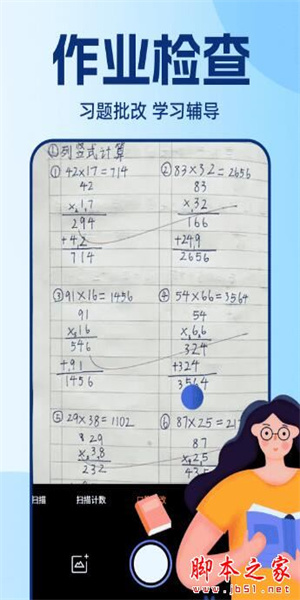 作业检查
习题批改 学习辅导
①列竖式计算
① 42×17=714
42
×17
294
+42
714
② 83×32=2656
83
×32
166
+249
2656
③ 91×16=1456
91
×16
546
+91
1456
④ 54×66=3564
54
×66
324
+324
3564
⑤ 29×38=1102
29
×38
232
⑥ 87×25=217
87
×25
43
扫描
扫描计数
脚本之家
www.jb51.net